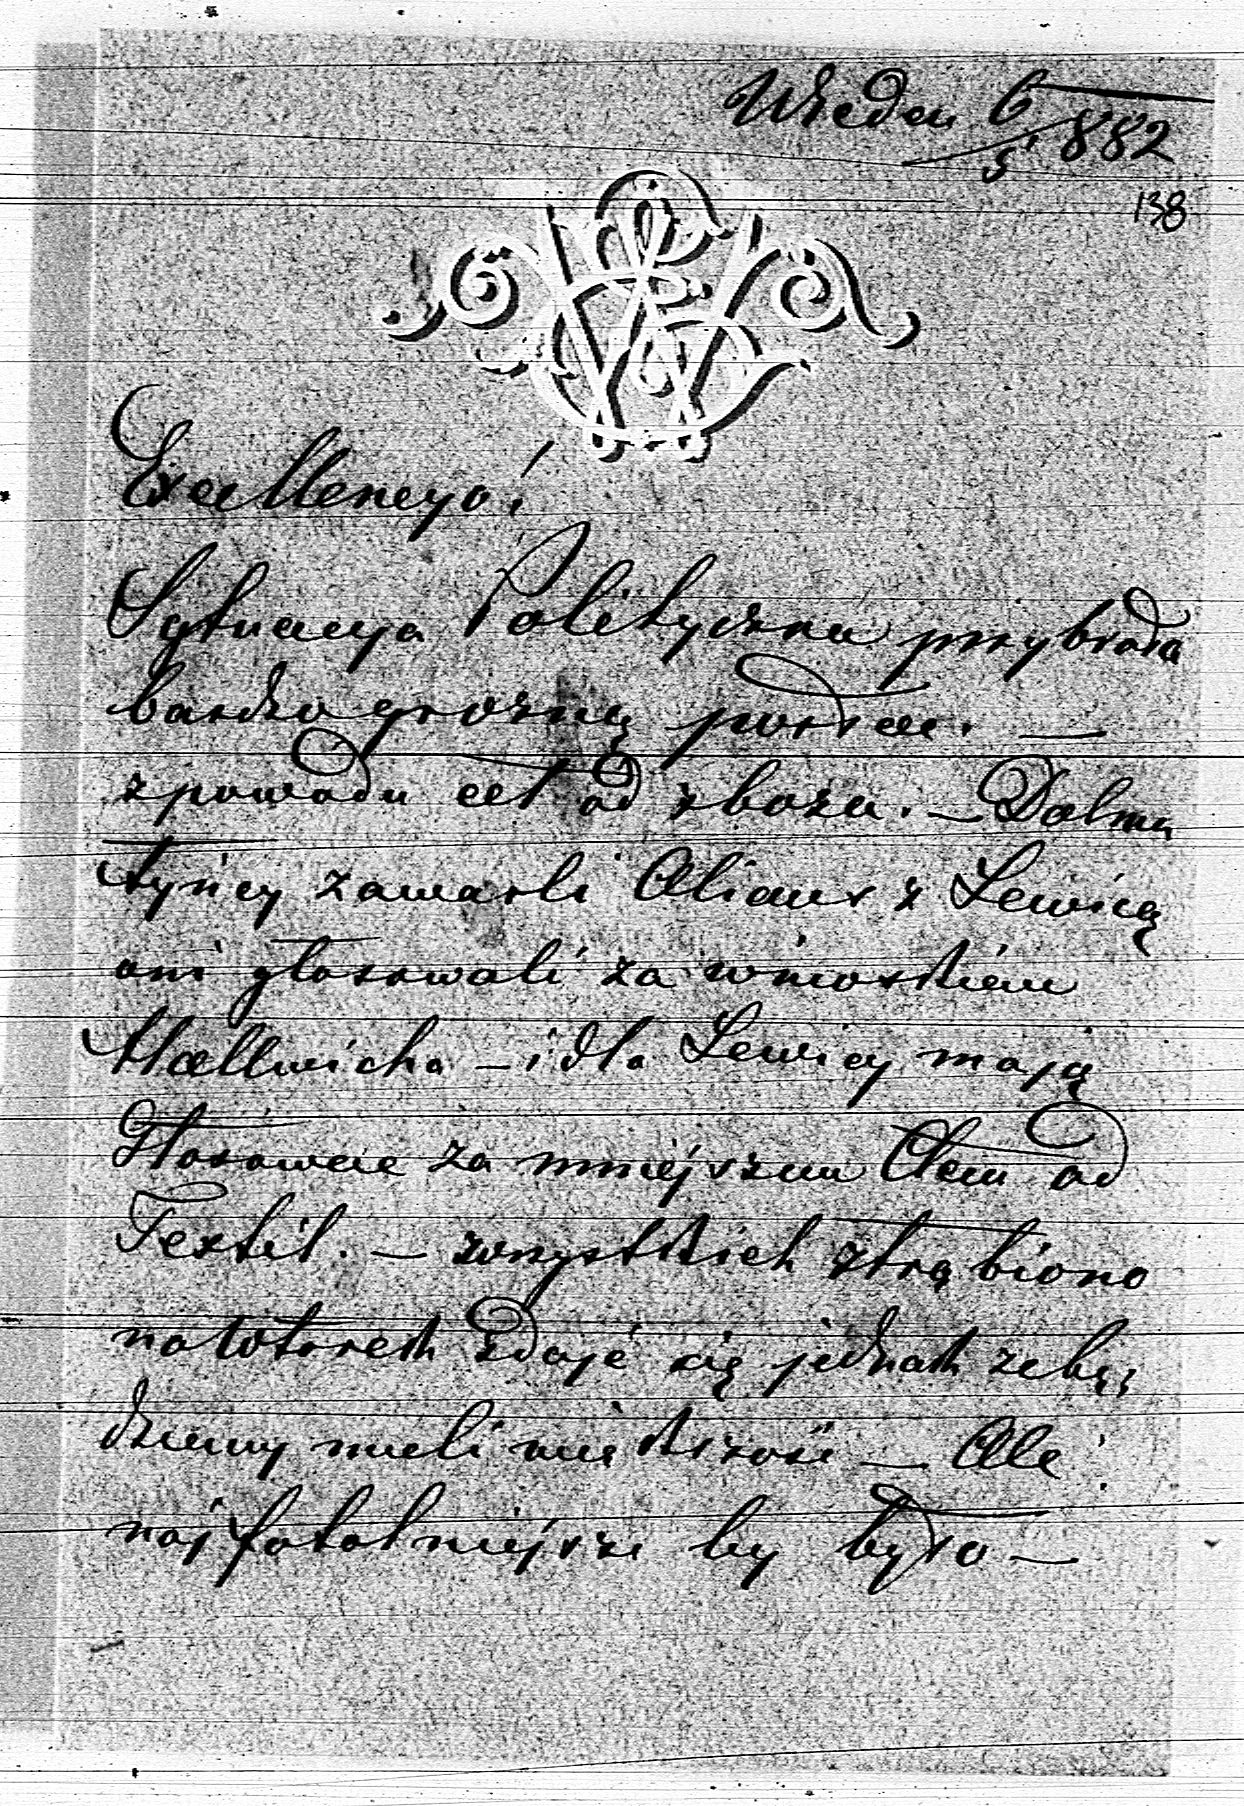 Wiedeń 6/5 882
138
Excellencyo!
Sytuacya Polityczna przybrała
bardzo groźną postać. —
z powodu ceł od zboża. — Dalma
tyńcy zawarli Alians z Lewicą
oni głosowali za wnioskiem
Hallwicha – i dla Lewicy mają
Głosować za mniejszem Cłem od
Textil. — wszystkich strąbiono
zdaje się jednak że bę:
dziemy mieli większość — Ale
najfatalniejsze by było —